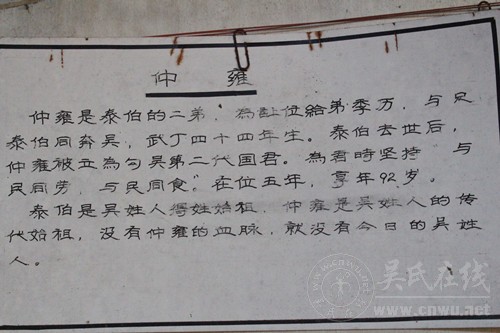 仲 雍
仲雍是泰伯的二弟，為让位給弟季历，与兄
泰伯同奔吴，武丁四十四年生。泰伯去世后，
仲雍被立為勾吴第二代国君。為君時坚持“与
民同劳，与民同食”。在位五年，享年92岁。
泰伯是吴姓人得姓始祖，仲雍是吴姓人的传
代始祖，没有仲雍的血脉，就没有今日的吴姓
人。
吴氏在线
www.cnwu.net